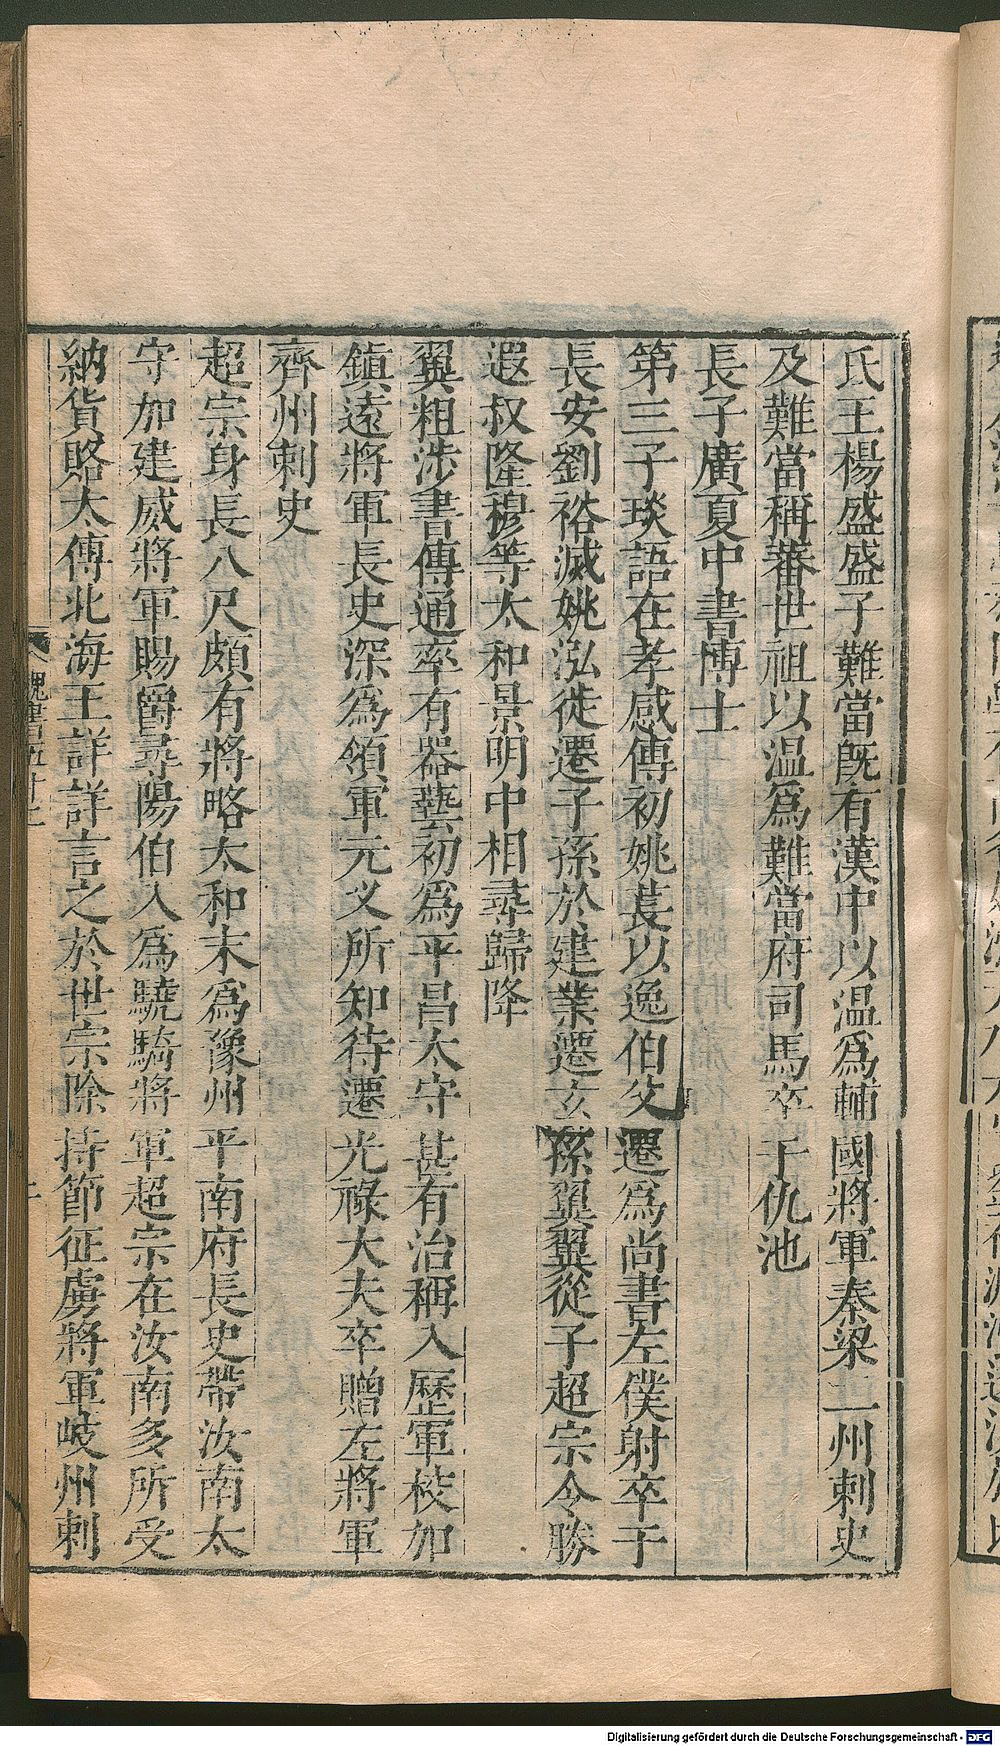 氐王楊盛盛子難當既有漢中以温爲輔國將軍秦梁二州刺史
及難當稱蕃世祖以温爲難當府司馬卒于仇池
長子廣夏中書博士
第三子琰語在孝感傳初姚萇以逸伯父遷爲尚書左僕射卒于
長安劉裕滅姚泓徙遷子孫於建業遷玄孫翼翼從子超宗令勝
遐叔隆穆等太和景明中相尋歸降
翼粗涉書傳通率有器藝初爲平昌太守甚有治稱入歷軍校加
鎮遠將軍長史深爲領軍元乂所知待遷光祿大夫卒贈左將軍
齊州刺史
超宗身長八尺頗有將略太和末爲豫州平南府長史帶汝南太
守加建威將軍賜爵尋陽伯入爲驍騎將軍超宗在汝南多所受
納貨賂太傅北海王詳詳言之於世宗除持節征虜將軍岐州刺
魏書五十二
Digitalisierung gefördert durch die Deutsche Forschungsgemeinschaft - DFG